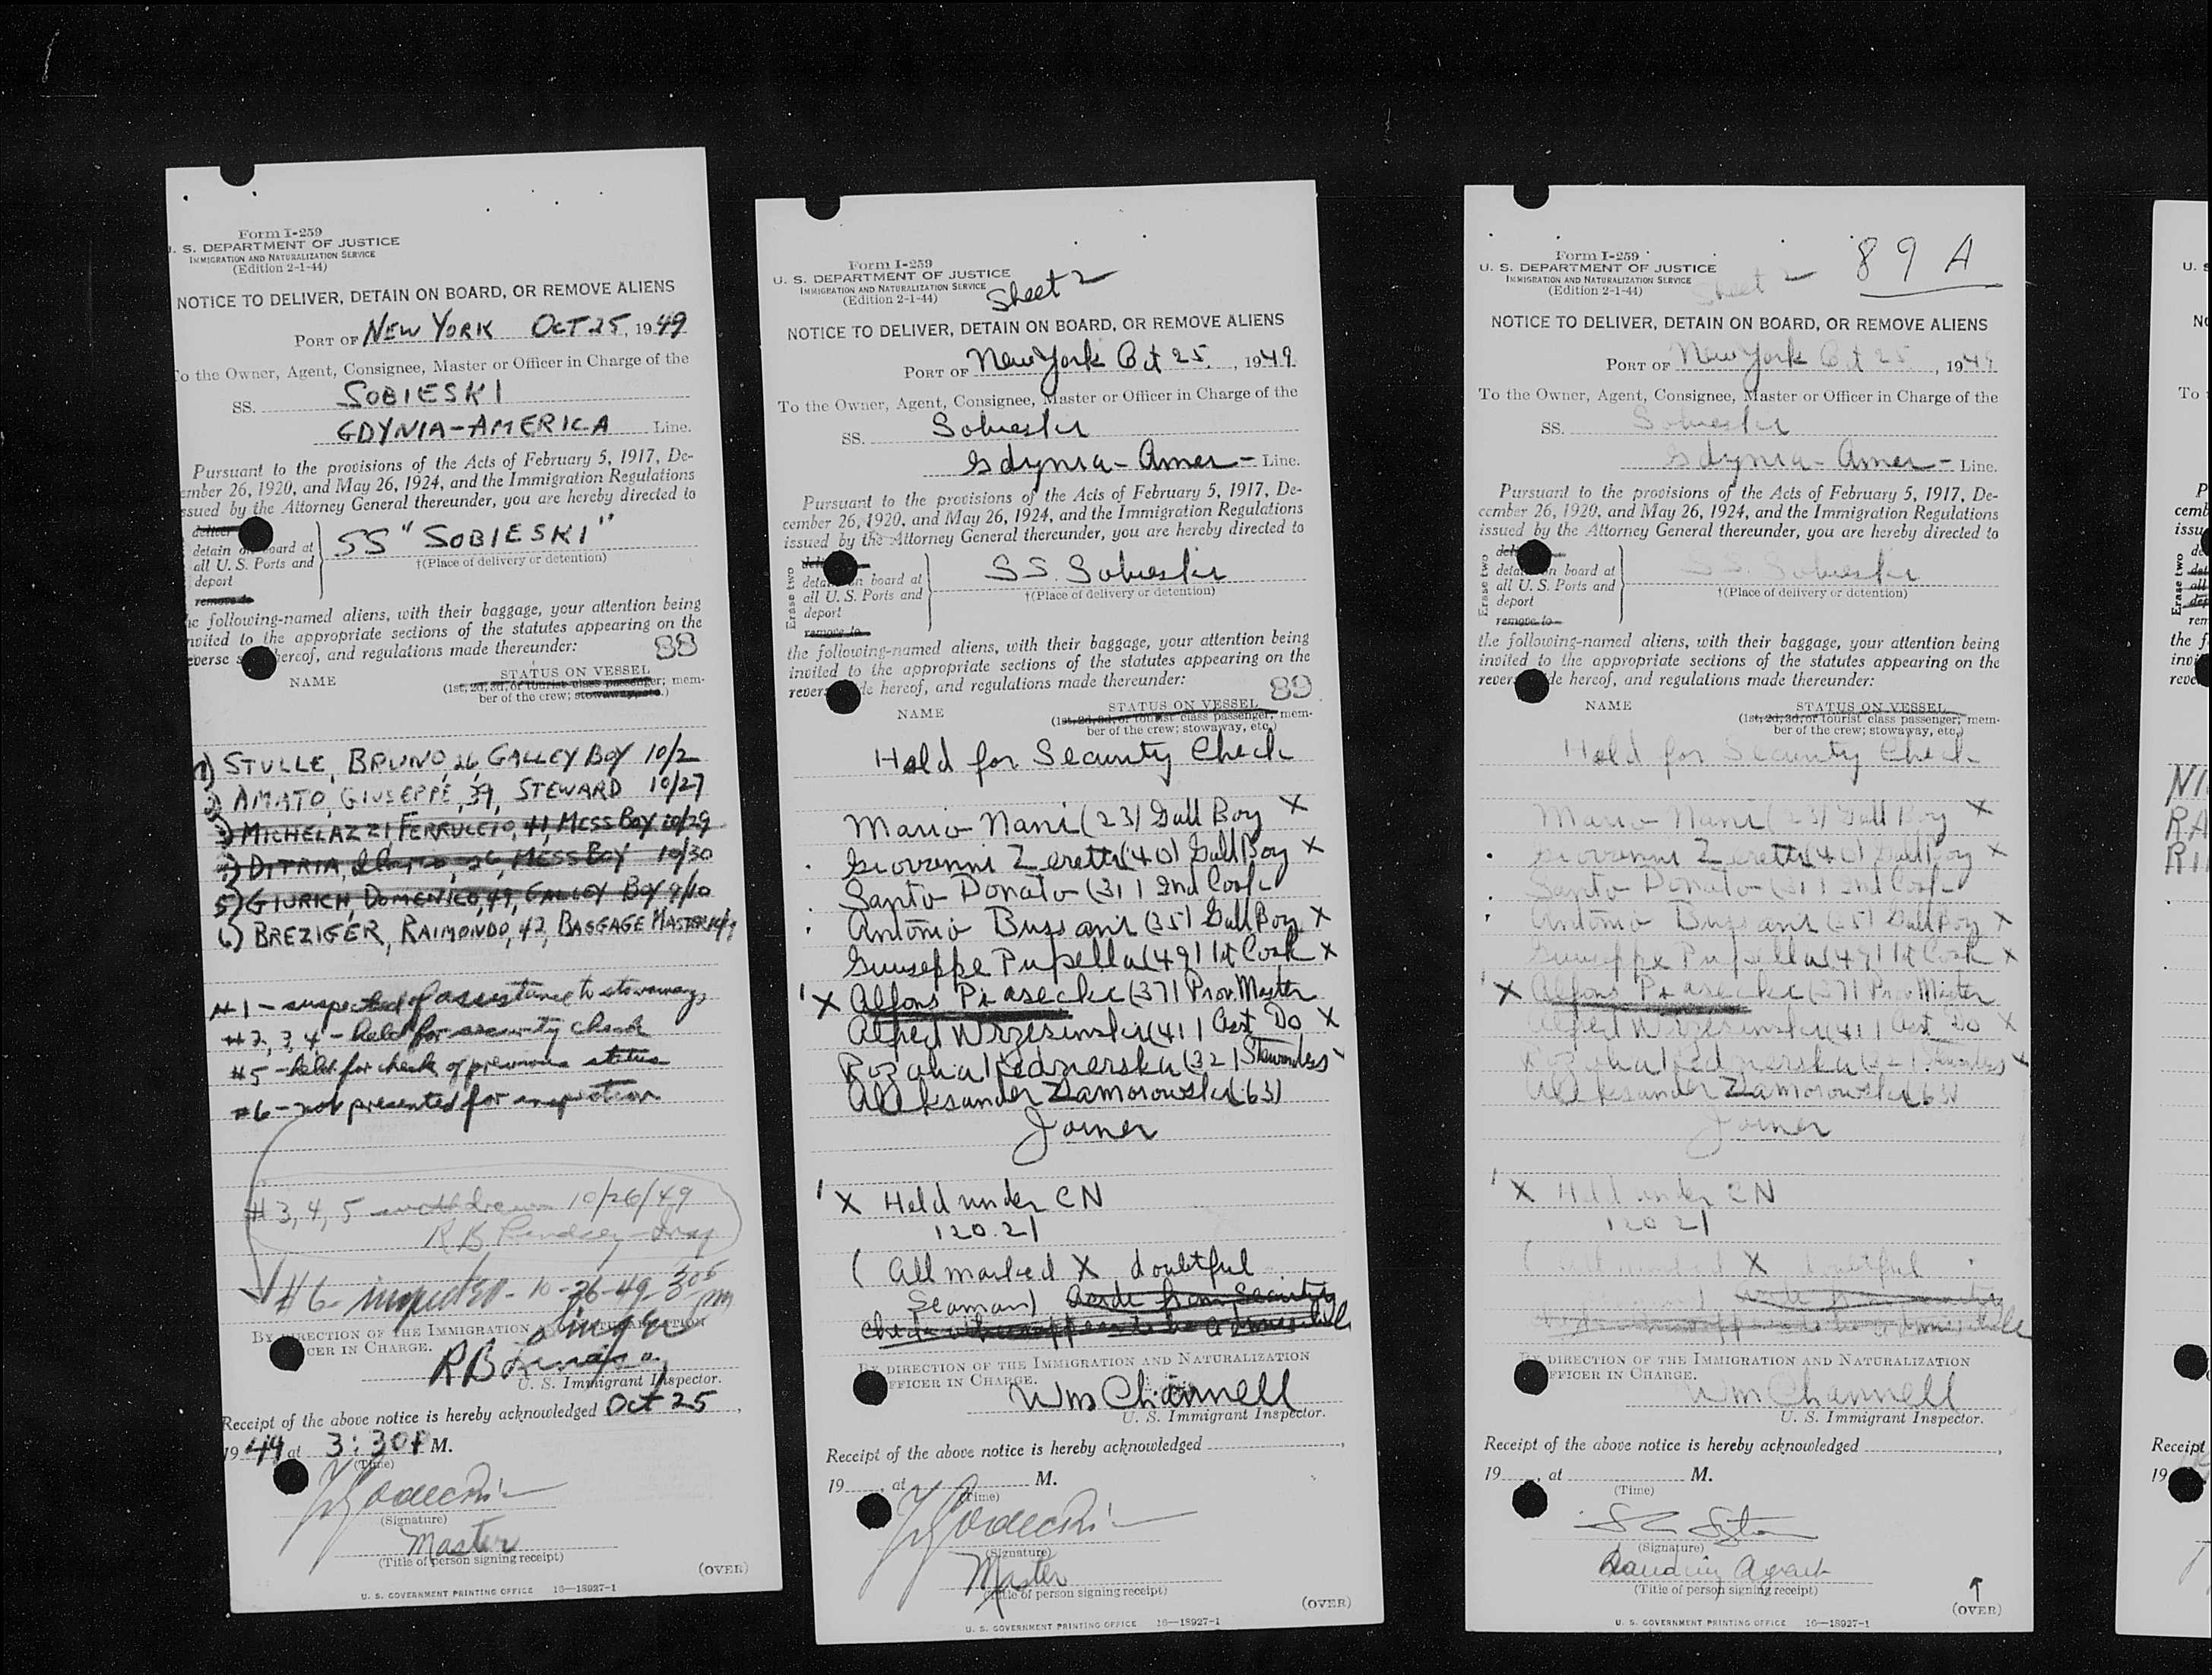 Form I-259
U. S. DEPARTMENT OF JUSTICE
IMMIGRATION AND NATURALIZATION SERVICE
(Edition 2-1-44)
NOTICE TO DELIVER, DETAIN ON BOARD, OR REMOVE ALIENS
PORT OF NEW YORK OCT 25, 1949
To the Owner, Agent, Consignee, Master or Officer in Charge of the
SS. SOBIESKI
GDYNIA-AMERICA Line.
Pursuant to the provisions of the Acts of February 5, 1917, De-
cember 26, 1920, and May 26, 1924, and the Immigration Regulations
issued by the Attorney General thereunder, you are hereby directed to
deliver
detain on board at
all U. S. Ports and
deport
remove to
SS "SOBIESKI"
†(Place of delivery or detention)
the following-named aliens, with their baggage, your attention being
invited to the appropriate sections of the statutes appearing on the
reverse side hereof, and regulations made thereunder:
88
NAME
STATUS ON VESSEL
(1st, 2d, 3d, or tourist class passenger; mem-
ber of the crew; stowaway, etc.)
1) STULLE, BRUNO, 26, GALLEY BOY 10/2
2) AMATO, GIUSEPPE, 39, STEWARD 10/27
3) MICHELAZZI FERRUCCIO, 41, MESS BOY 10/29
4) DITRIA, 26, MESS BOY 10/30
5) GIURICH, DOMENICO, 49, GALLEY BOY 9/10
6) BREZIGER, RAIMONDO, 42, BAGGAGE MASTER
#1 - suspected of assistance to stowaway
#2, 3, 4 - held for security check
#5 - held for check of previous status
#6 - not presented for inspection
#3, 4, 5 withdrawn 10/26/49
R B Insp
#6 - inspected - 10-26-49 - 3 05 pm
BY DIRECTION OF THE IMMIGRATION AND NATURALIZATION
OFFICER IN CHARGE.
R B
U. S. Immigrant Inspector.
Receipt of the above notice is hereby acknowledged Oct 25,
1949 at 3:30 P M.
(Time)
(Signature)
Master
(Title of person signing receipt)
(OVER)
U. S. GOVERNMENT PRINTING OFFICE 16—18927-1
Form I-259
U. S. DEPARTMENT OF JUSTICE
IMMIGRATION AND NATURALIZATION SERVICE
(Edition 2-1-44)
Sheet 2
NOTICE TO DELIVER, DETAIN ON BOARD, OR REMOVE ALIENS
PORT OF New York Oct 25, 1949
To the Owner, Agent, Consignee, Master or Officer in Charge of the
SS. Sobieski
Gdynia-Amer- Line.
Pursuant to the provisions of the Acts of February 5, 1917, De-
cember 26, 1920, and May 26, 1924, and the Immigration Regulations
issued by the Attorney General thereunder, you are hereby directed to
Erase two
deliver
detain on board at
all U. S. Ports and
deport
remove to
SS. Sobieski
†(Place of delivery or detention)
the following-named aliens, with their baggage, your attention being
invited to the appropriate sections of the statutes appearing on the
reverse side hereof, and regulations made thereunder:
89
NAME
STATUS ON VESSEL
(1st, 2d, 3d, or tourist class passenger; mem-
ber of the crew; stowaway, etc.)
Held for Security Check
Mario Nani (23) Gall Boy X
Giovanni Zerette (40) Gall Boy X
Santo Donato (31) 2nd Cook
Antonio Bussani (35) Gall Boy X
Giuseppe Pupella (49) 1st Cook X
X Alfons Piasecki (37) Prov. Master
Alfred Wrzesinski (41) Asst Do X
Rozalia Kednierska (32) Stewardess
Aleksander Zamorowski (63)
Joiner
X Held under CN
120.21
(All marked X doubtful
Seaman) Aside from Security
check
BY DIRECTION OF THE IMMIGRATION AND NATURALIZATION
OFFICER IN CHARGE.
Wm Channell
U. S. Immigrant Inspector.
Receipt of the above notice is hereby acknowledged
19 , at M.
(Time)
(Signature)
Master
(Title of person signing receipt)
(OVER)
U. S. GOVERNMENT PRINTING OFFICE 16—18927-1
Form I-259
U. S. DEPARTMENT OF JUSTICE
IMMIGRATION AND NATURALIZATION SERVICE
(Edition 2-1-44)
Sheet 2
89 A
NOTICE TO DELIVER, DETAIN ON BOARD, OR REMOVE ALIENS
PORT OF New York Oct 25, 1949
To the Owner, Agent, Consignee, Master or Officer in Charge of the
SS. Sobieski
Gdynia-Amer- Line.
Pursuant to the provisions of the Acts of February 5, 1917, De-
cember 26, 1920, and May 26, 1924, and the Immigration Regulations
issued by the Attorney General thereunder, you are hereby directed to
Erase two
deliver
detain on board at
all U. S. Ports and
deport
remove to
SS. Sobieski
†(Place of delivery or detention)
the following-named aliens, with their baggage, your attention being
invited to the appropriate sections of the statutes appearing on the
reverse side hereof, and regulations made thereunder:
NAME
STATUS ON VESSEL
(1st, 2d, 3d, or tourist class passenger; mem-
ber of the crew; stowaway, etc.)
Held for Security Check
Mario Nani (23) Gall Boy X
Giovanni Zerette (40) Gall Boy X
Santo Donato (31) 2nd Cook
Antonio Bussani (35) Gall Boy X
Giuseppe Pupella (49) 1st Cook X
X Alfons Piasecki (37) Prov. Master
Alfred Wrzesinski (41) Asst Do X
Rozalia Kednierska (32) Stewardess
Aleksander Zamorowski (63)
Joiner
X Held under CN
120.21
(All marked X doubtful
BY DIRECTION OF THE IMMIGRATION AND NATURALIZATION
OFFICER IN CHARGE.
Wm Channell
U. S. Immigrant Inspector.
Receipt of the above notice is hereby acknowledged
19 , at M.
(Time)
(Signature)
Boarding Agent
(Title of person signing receipt)
(OVER)
U. S. GOVERNMENT PRINTING OFFICE 16—18927-1